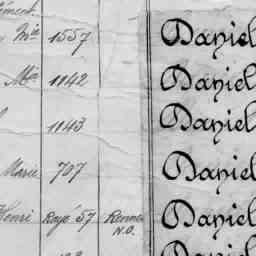 ément
Mia 1557 Daniel
Mia 1142 Daniel
1143 Daniel
Marie 707 Daniel
Henri Rayé 57 Rennes Daniel
N.O.
Daniel